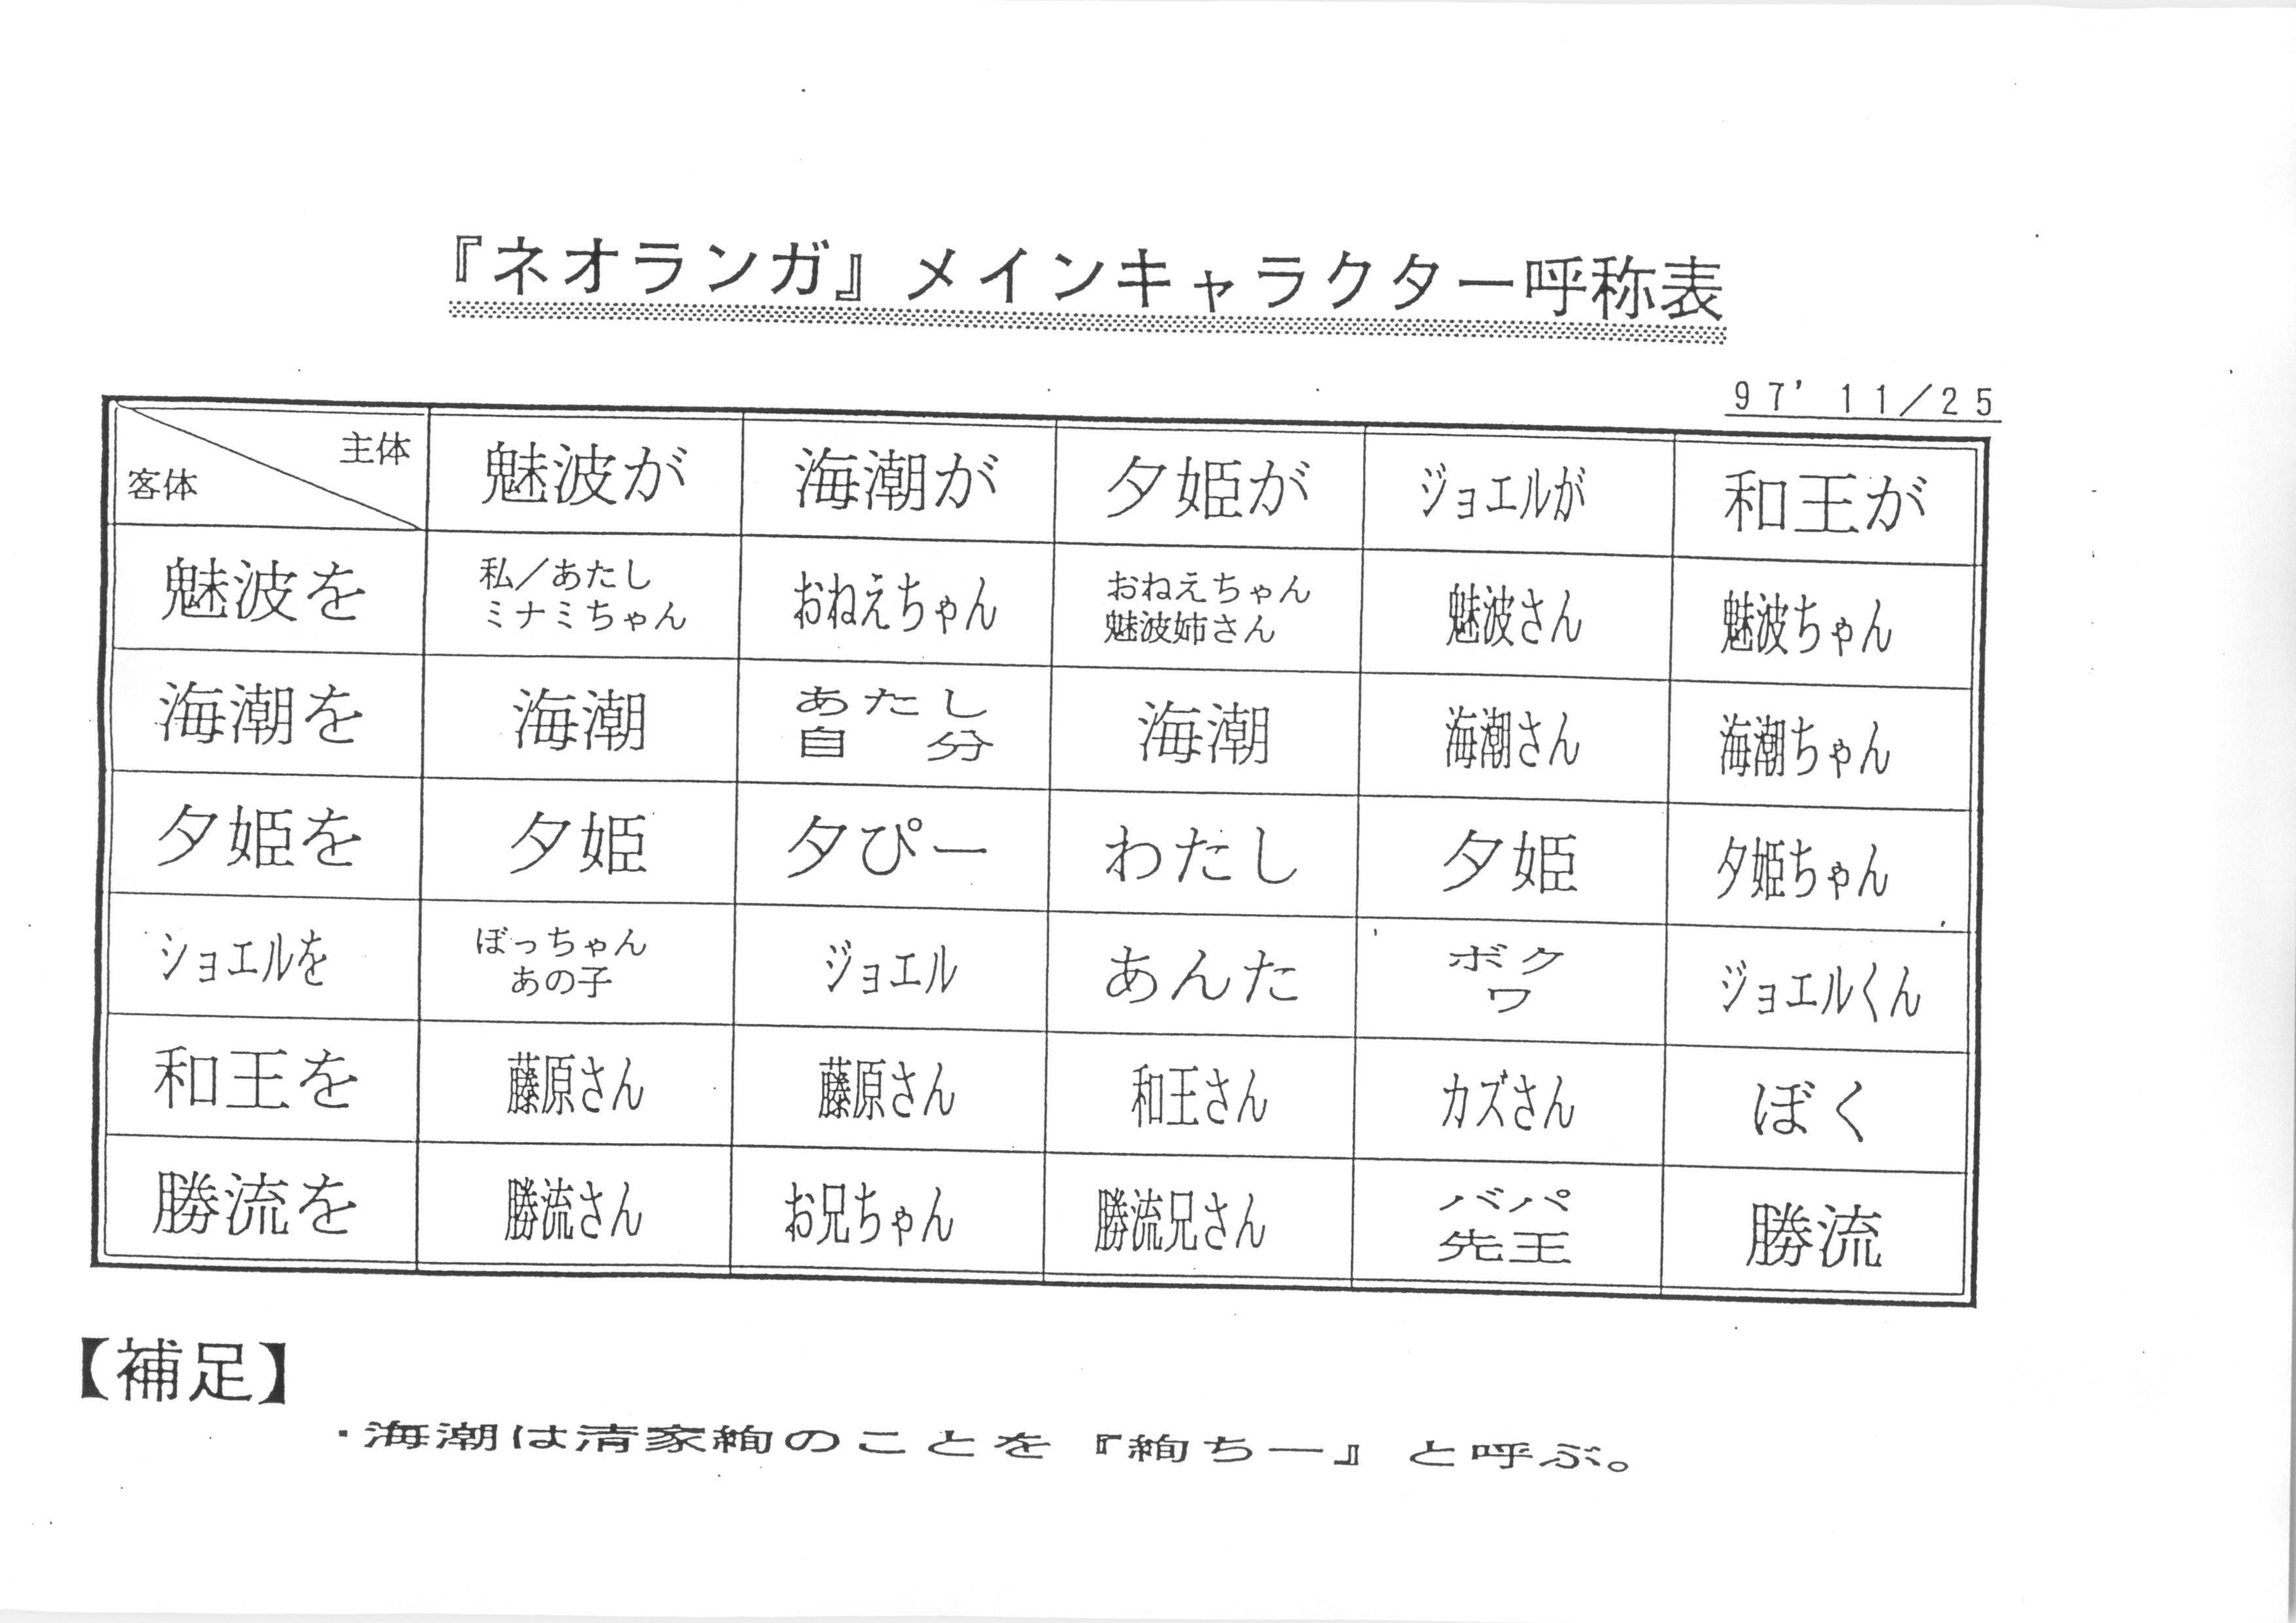 『ネオランガ』メインキャラクター呼称表
97' 11/25
主体
客体
魅波が 海潮が 夕姫が ジョエルが 和王が
魅波を 私／あたし ミナミちゃん おねえちゃん おねえちゃん 魅波姉さん 魅波さん 魅波ちゃん
海潮を 海潮 あたし 自分 海潮 海潮さん 海潮ちゃん
夕姫を 夕姫 夕ぴー わたし 夕姫 夕姫ちゃん
ジョエルを ぼっちゃん あの子 ジョエル あんた ボク ワ ジョエルくん
和王を 藤原さん 藤原さん 和王さん カズさん ぼく
勝流を 勝流さん お兄ちゃん 勝流兄さん パパ 先王 勝流
【補足】
・海潮は清家絢のことを『絢ちー』と呼ぶ。